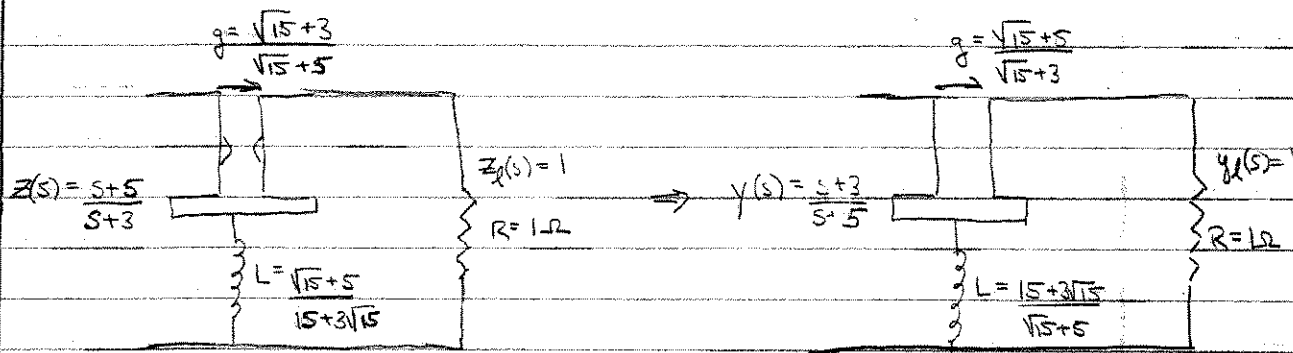 g = √15+3 / √15+5
Z(s) = s+5 / s+3
z_ℓ(s) = 1
R = 1Ω
L = √15+5 / 15+3√15
⇒
g = √15+5 / √15+3
y(s) = s+3 / s+5
y_ℓ(s) =
R = 1Ω
L = 15+3√15 / √15+5